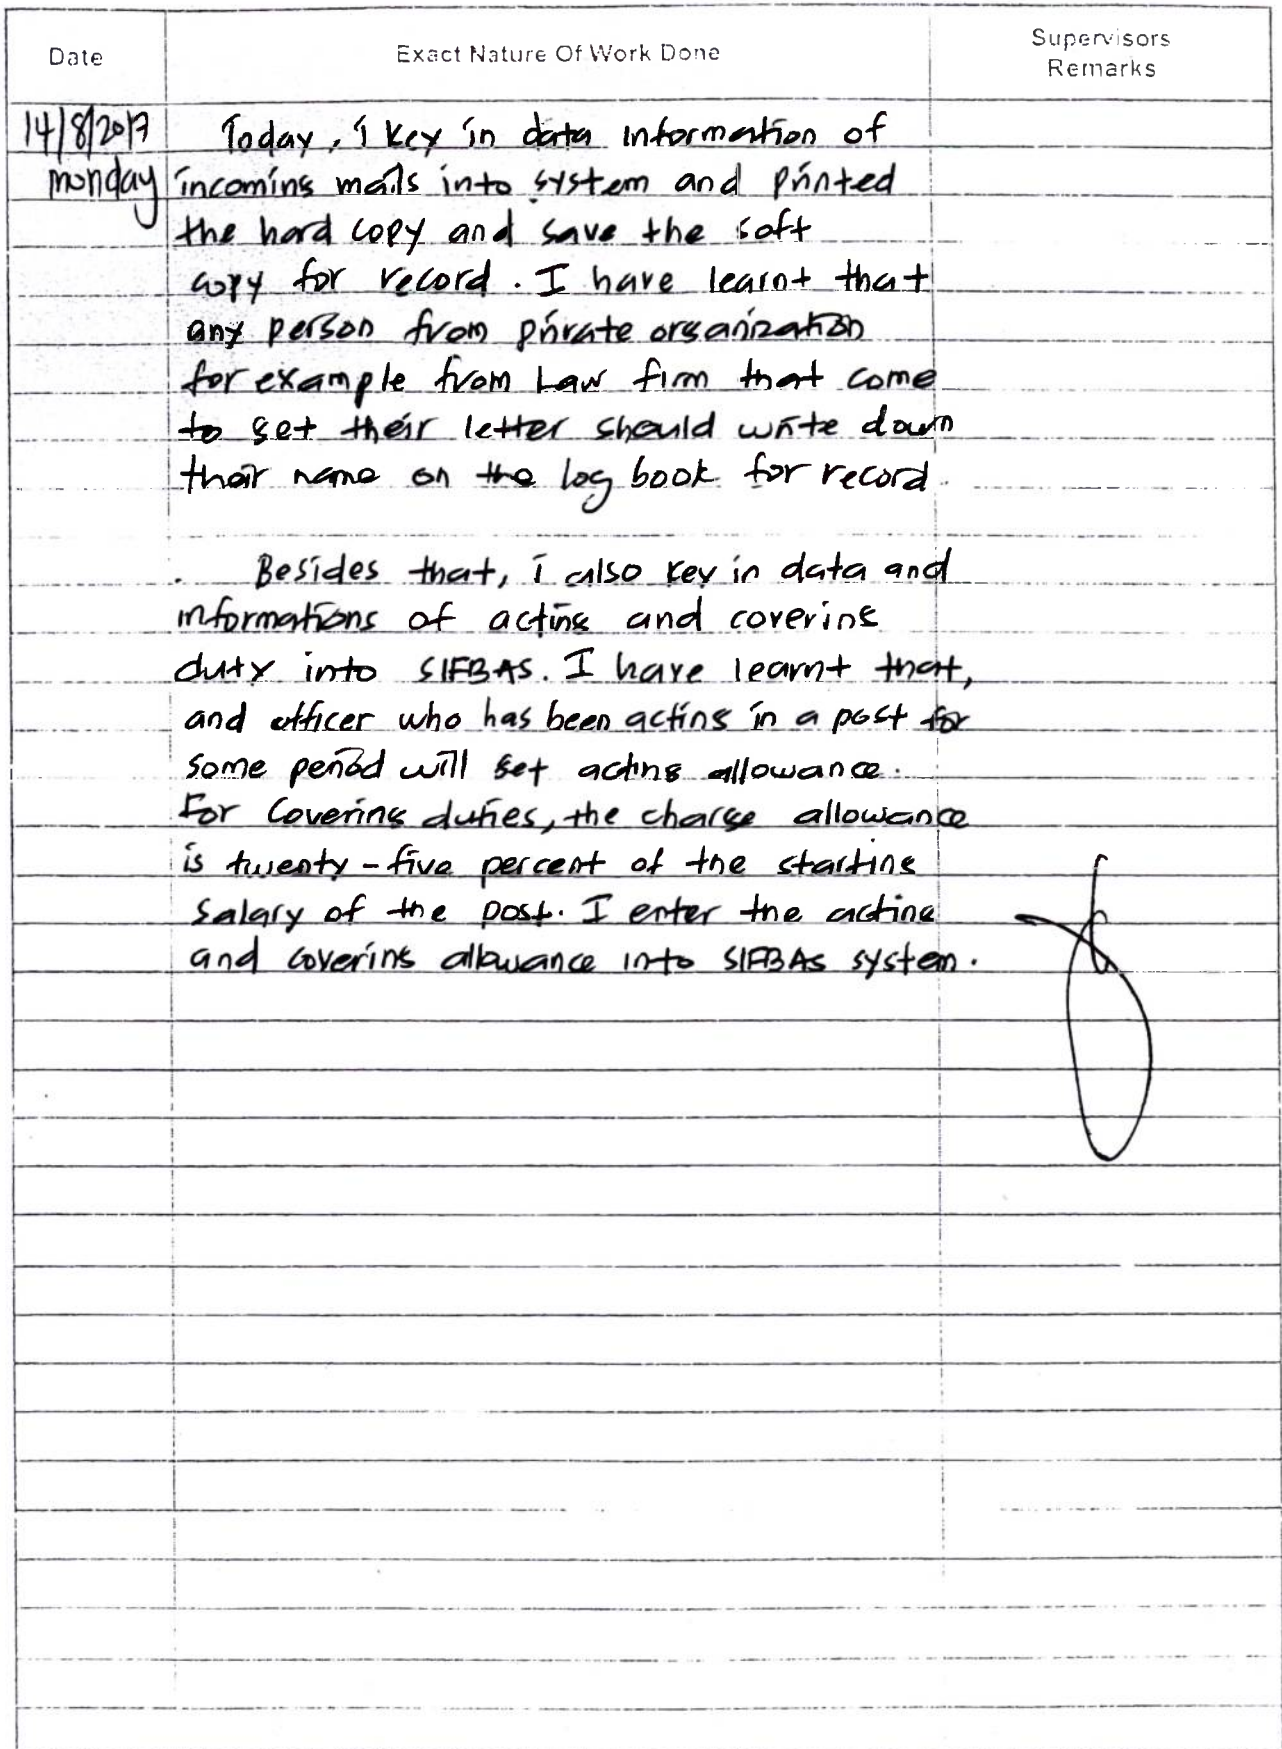 Date
Exact Nature Of Work Done
Supervisors
Remarks
14/8/2017
monday
Today, i key in data information of
incoming mails into system and printed
the hard copy and save the soft
copy for record. I have learnt that
any person from private organization
for example from Law firm that come
to get their letter should write down
their name on the log book for record.
Besides that, i also key in data and
informations of acting and covering
duty into SIFBAS. I have learnt that,
and officer who has been acting in a post for
some period will get acting allowance.
For Covering duties, the charge allowance
is twenty-five percent of the starting
salary of the post. I enter the acting
and covering allowance into SIFBAS system.